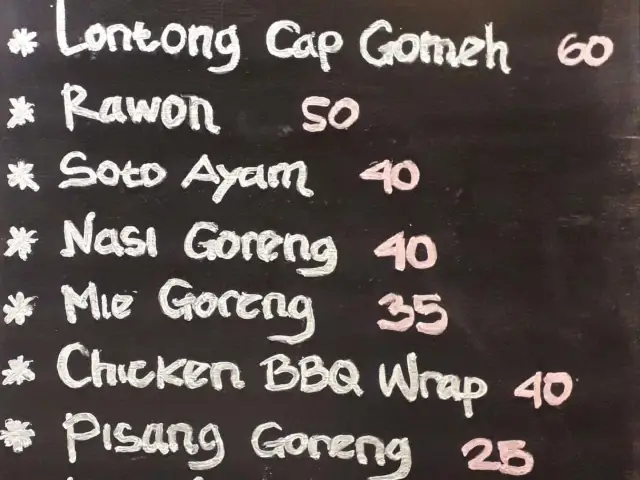 * Lontong Cap Gomeh 60
* Rawon 50
* Soto Ayam 40
* Nasi Goreng 40
* Mie Goreng 35
* Chicken BBQ Wrap 40
* Pisang Goreng 25